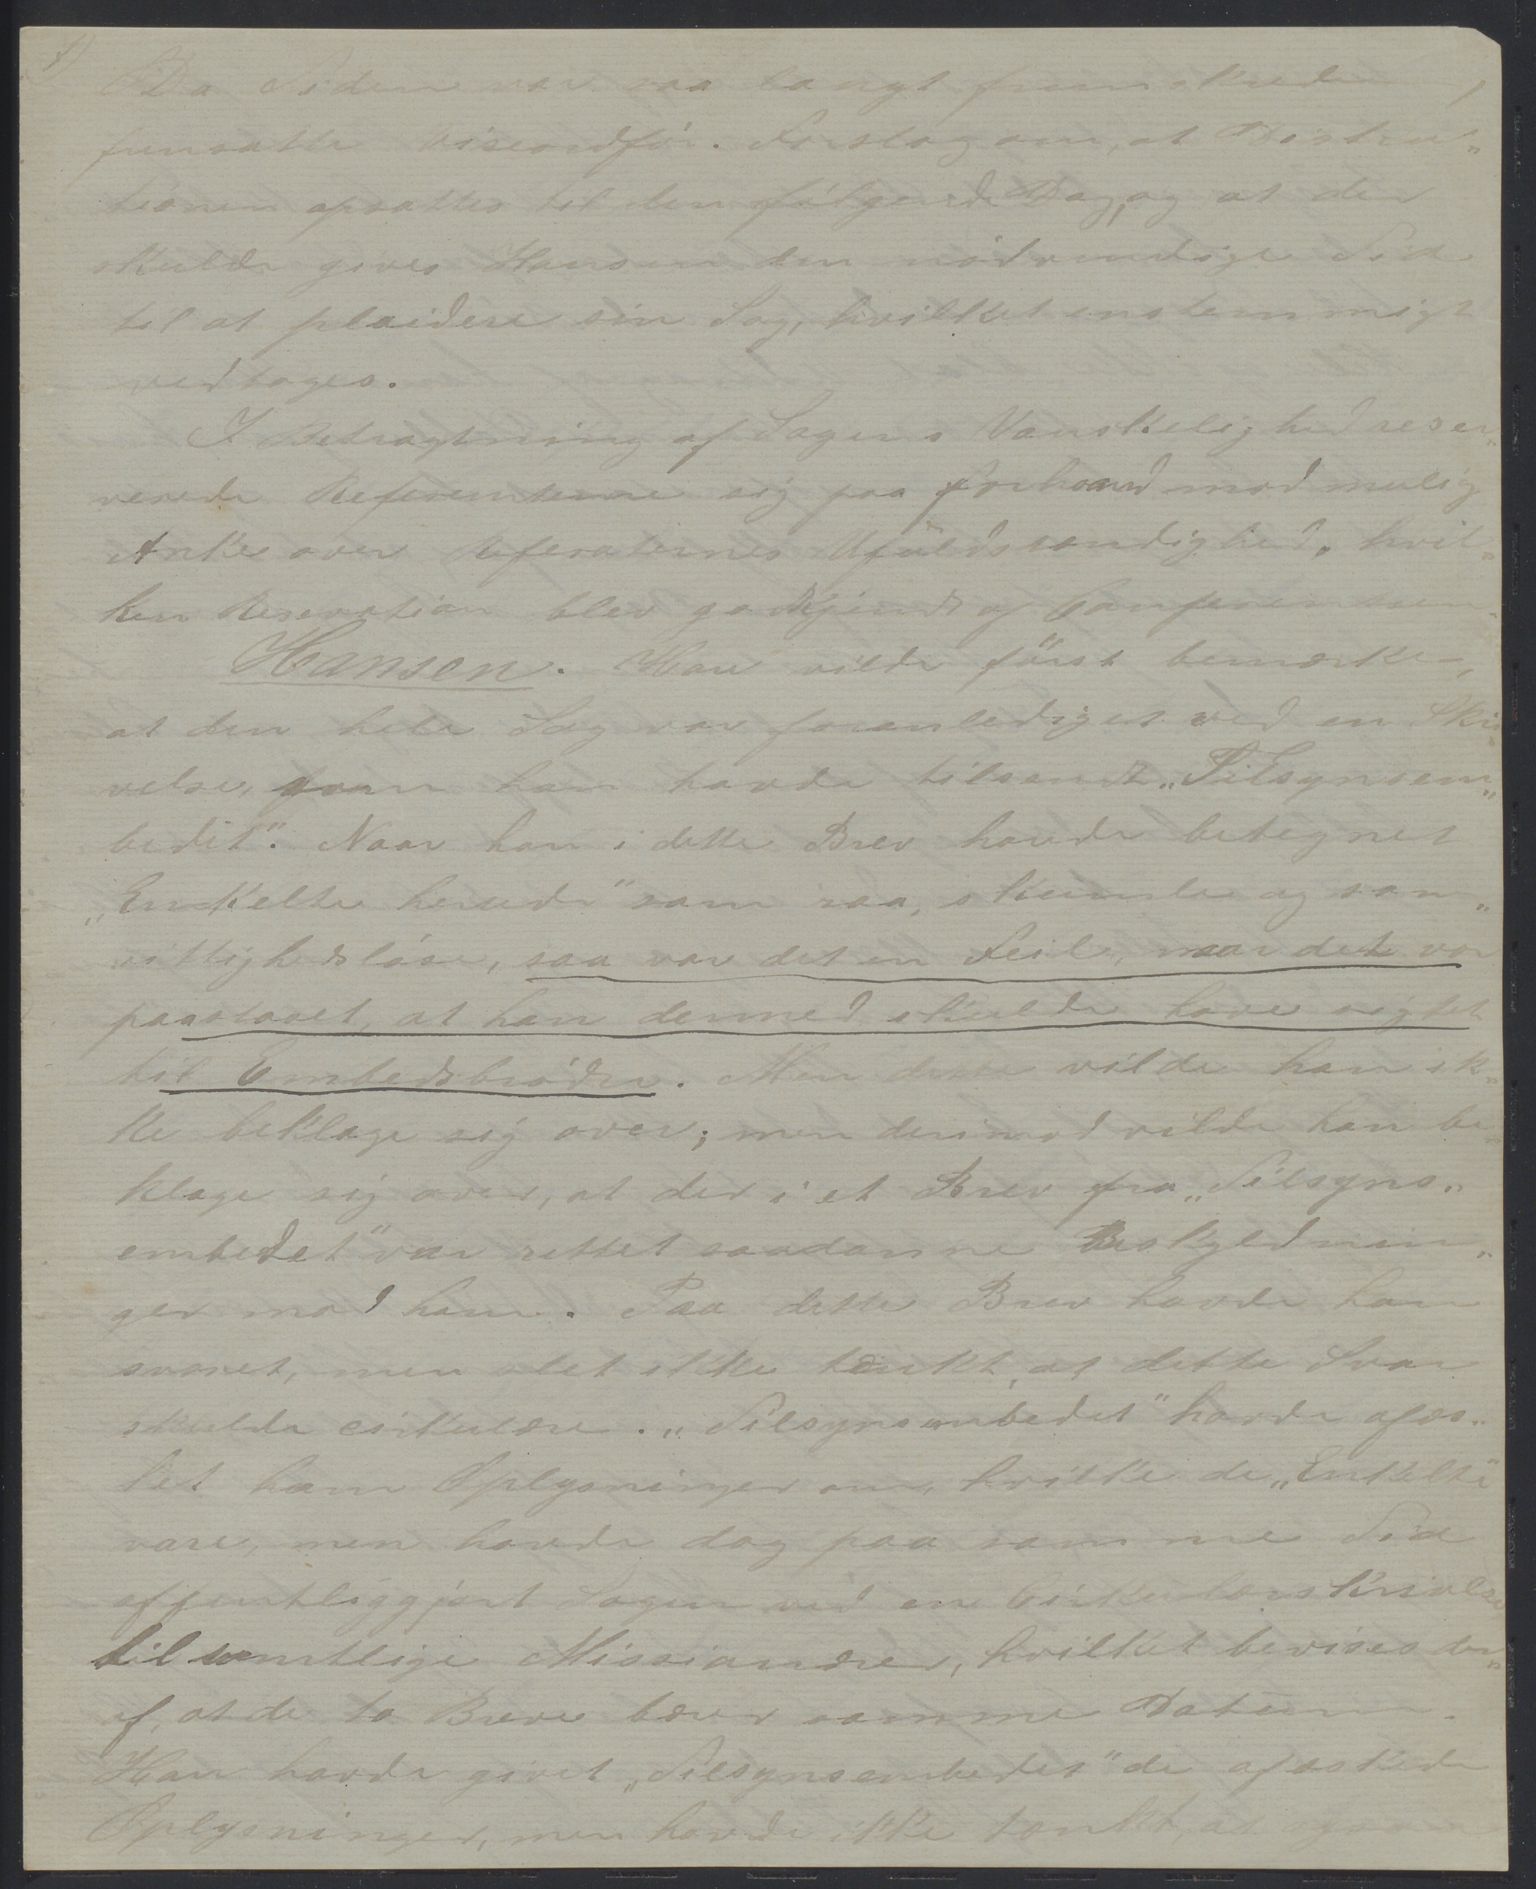 Da Tiden var saa langt fremskreden,
fremsatte Viseordför. Forslag om, at Diskus„
tionen opsattes til den fölgende Dag, og at der
skulde gives Hansen den nödvendige Tid
til at plaidere sin Sag, hvilket enstemmigt
vedtoges.
I Betragtning af Sagens Vanskelighed reser„
verede Referenterne sig paa forhaand mod mulig
Anke over Referaternes Ufuldstændighed, hvil„
ken Reservation blev godkjendt af Conferentsen.
Hansen. Han vilde först bemærke,
at den hele Sag var foranlediget ved en Skri„
velse, som han havde tilsendt „Tilsynsem„
bedet". Naar han i dette Brev havde betegnet
„Enkelte herude" som raa, skumle og sam„
vittighedslöse, saa var det en Feil, naar det var
paastaaet, at han dermed skulde have sigtet
til Embedsbrödre. Men dette vilde han ik„
ke beklage sig over; men derimod vilde han be„
klage sig over, at der i et Brev fra „Tilsyns„
embedet" var rettet saadanne Beskyldnin„
ger mod ham. Paa dette Brev havde han
svaret, men slet ikke tænkt, at dette Svar
skulde cirkulere. „Tilsynsembedet" havde afæs„
ket ham Oplysninger om, hvilke de „Enkelte"
vare, men havde dog paa samme Tid
offentliggjort Sagen ved en Cirkulærskrivelse
til samtlige Missionærer, hvilket bevises der„
af, at de to Breve bærer samme Datum.
Han havde givet „Tilsynsembedet" de afæskede
Oplysninger, men havde ikke tænkt, at